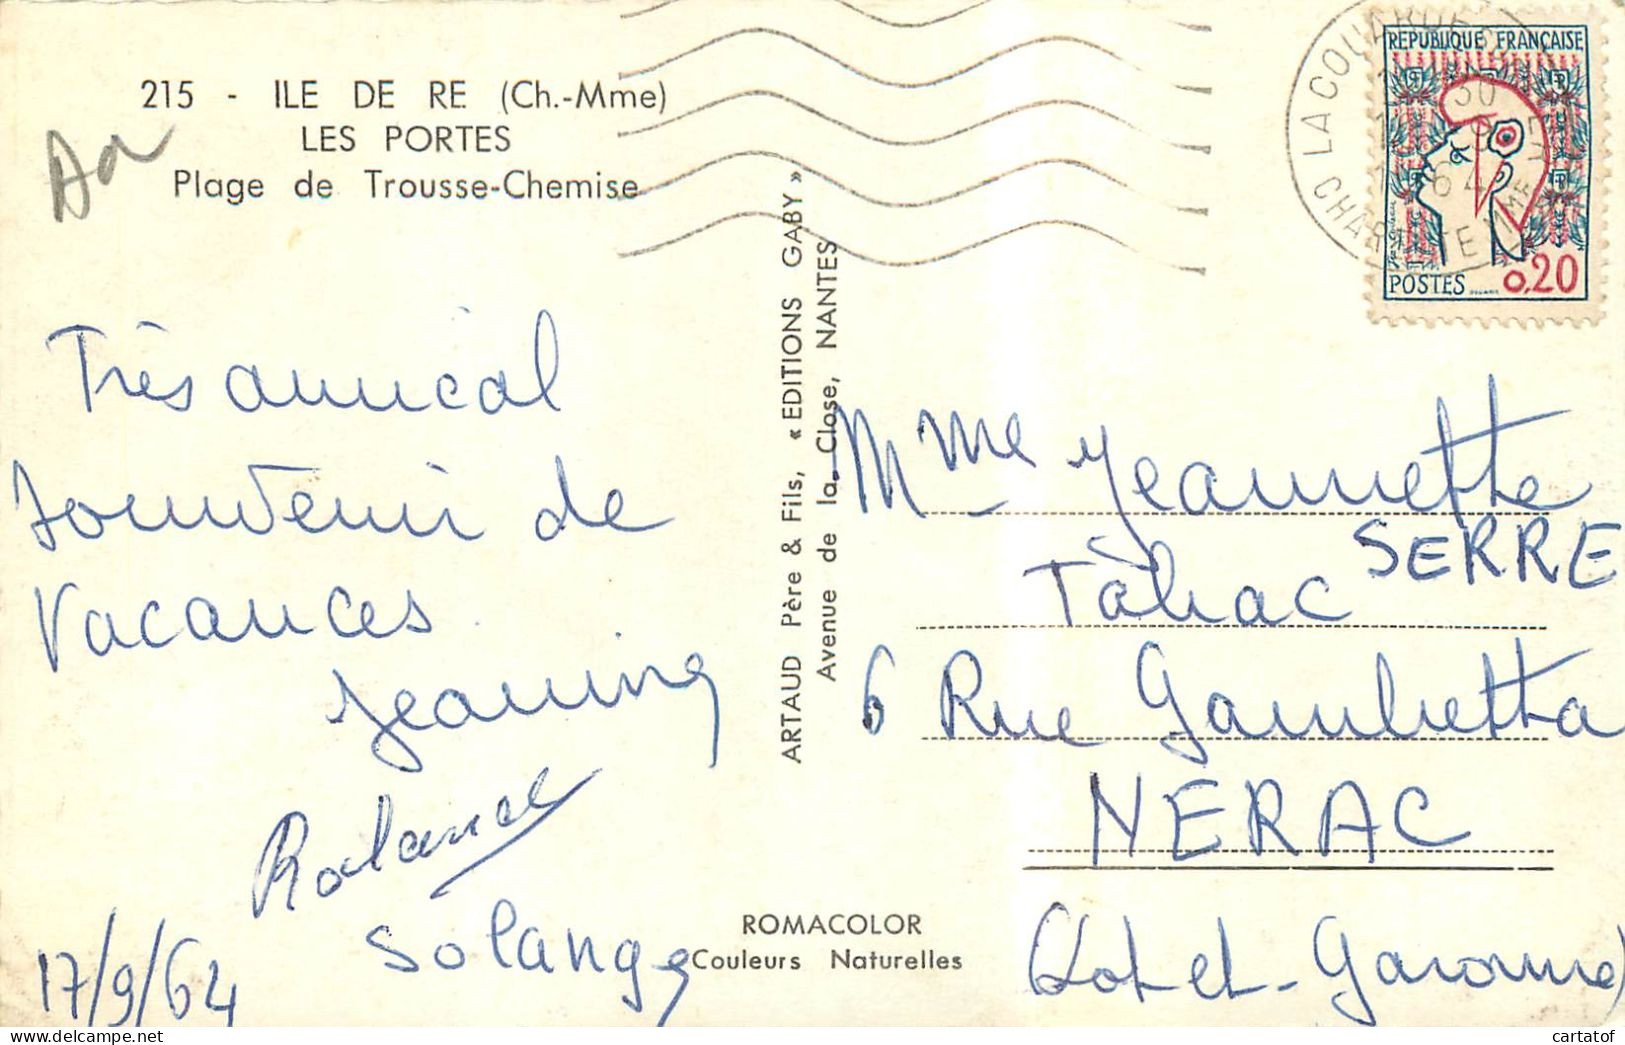 215 - ILE DE RE (Ch.-Mme)
LES PORTES
Plage de Trousse-Chemise
Très amical
souvenir de
Vacances
Jeanine
Rolande
Solange
17/9/64
ARTAUD Père & Fils, « EDITIONS GABY »
Avenue de la Close, NANTES
ROMACOLOR
Couleurs Naturelles
LA COUARDE
CHARENTE
REPUBLIQUE FRANÇAISE
POSTES 0,20
Mme Jeannette
SERRE
Tabac
6 Rue Gambetta
NERAC
(Lot-et-Garonne)
cartatof